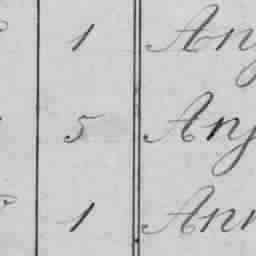 1 Ang
5 Ang
1 Ann